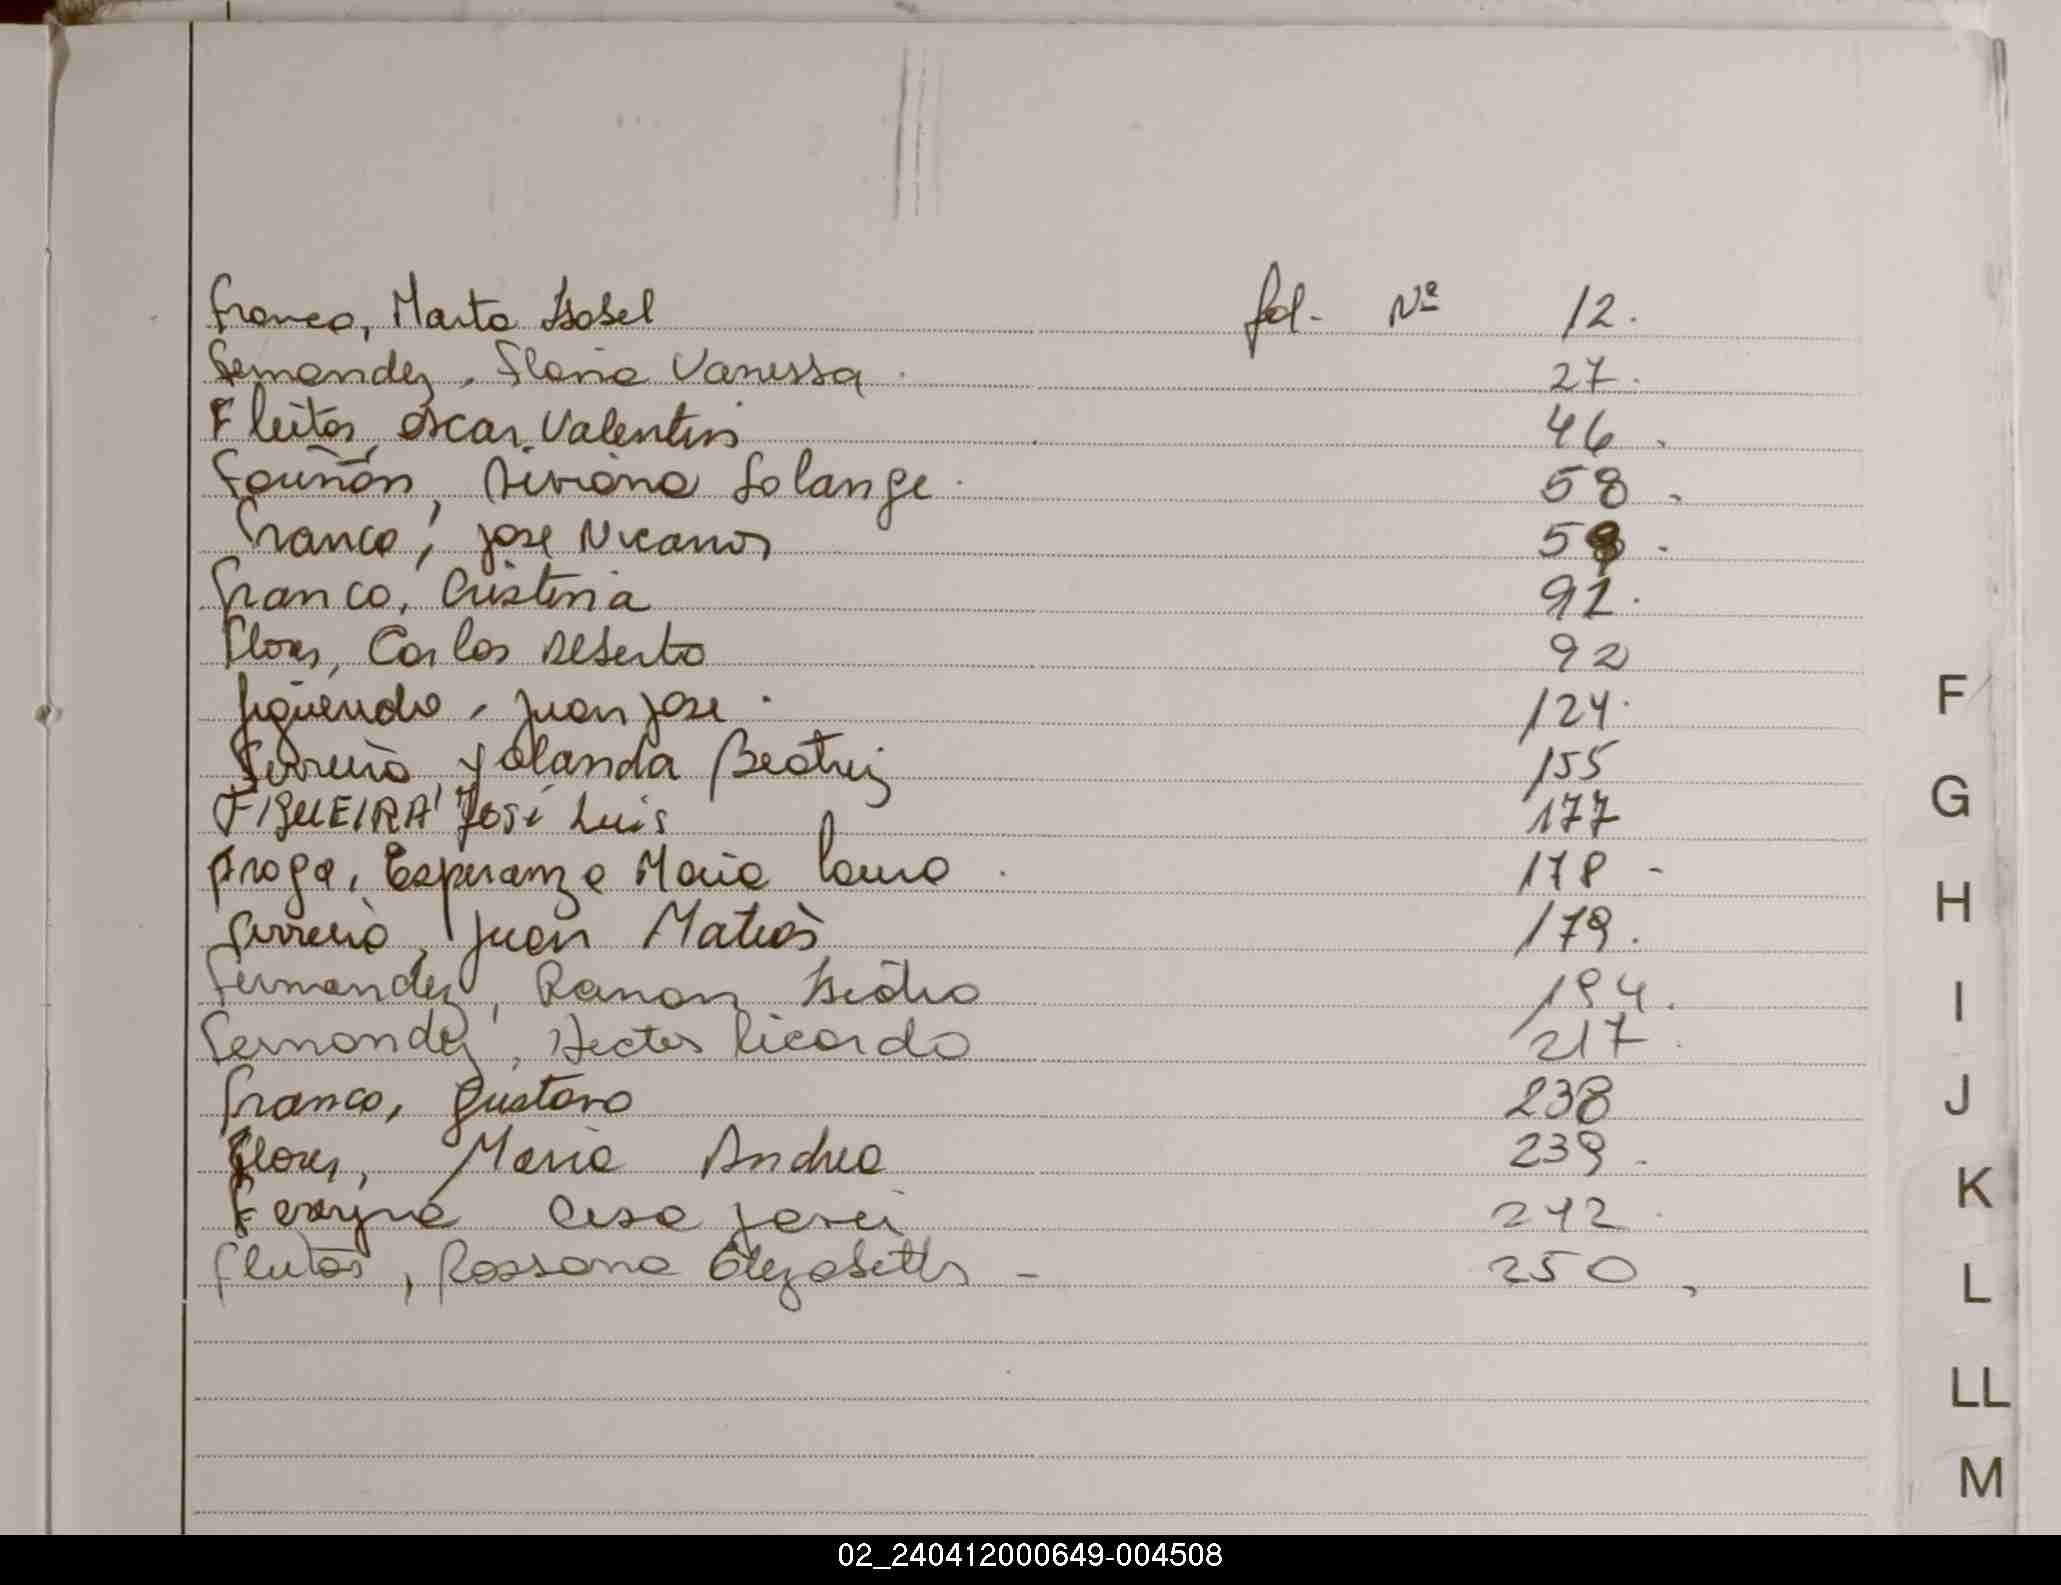 Franco, Marta Isabel fol. Nº 12.
Fernandez, Flavia Vanessa. 27.
Fleitas, Oscar Valentin 46.
Fariñas, Viviana Solange. 58.
Franco, Jose Nicanor 59.
Franco, Cristina 91.
Flores, Carlos Alberto 92
Figueredo, Juan Jose. 124.
Ferreira Yolanda Beatriz 155
FIGUEIRA José Luis 177
Fraga, Esperanza Maria Laura. 178-
Ferreira, Juan Matias 179.
Fernandez, Ramon Isidro 194.
Fernandez, Hector Ricardo 217.
Franco, Gustavo 238
Flores, Maria Andrea 239.
242.
Fleitas, Rossana Elizabeth - 250,
F
G
H
I
J
K
L
LL
M
02_240412000649-004508